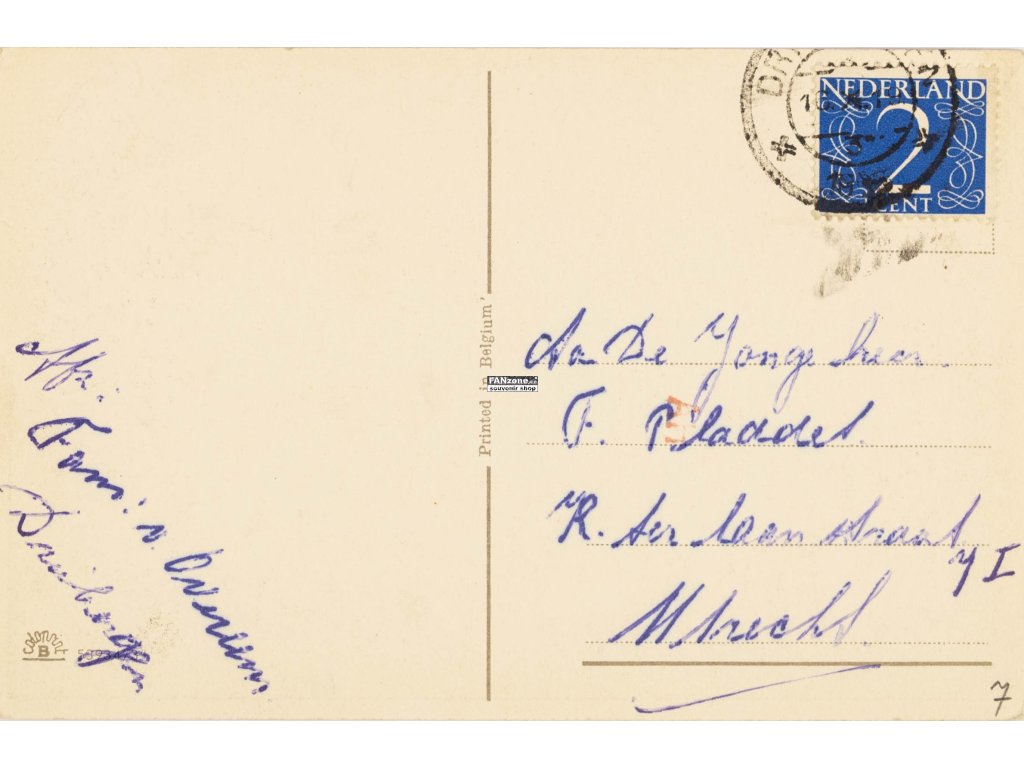 NEDERLAND
2
CENT
Printed in Belgium
FANzone.cz
souvenir shop
Aa De Jonge heer.
F. Pladdet.
K. ter Laan straat
7 I
Utrecht.
Afz.
Fam. v. Overeem
Driebergen
colorprint
B
7